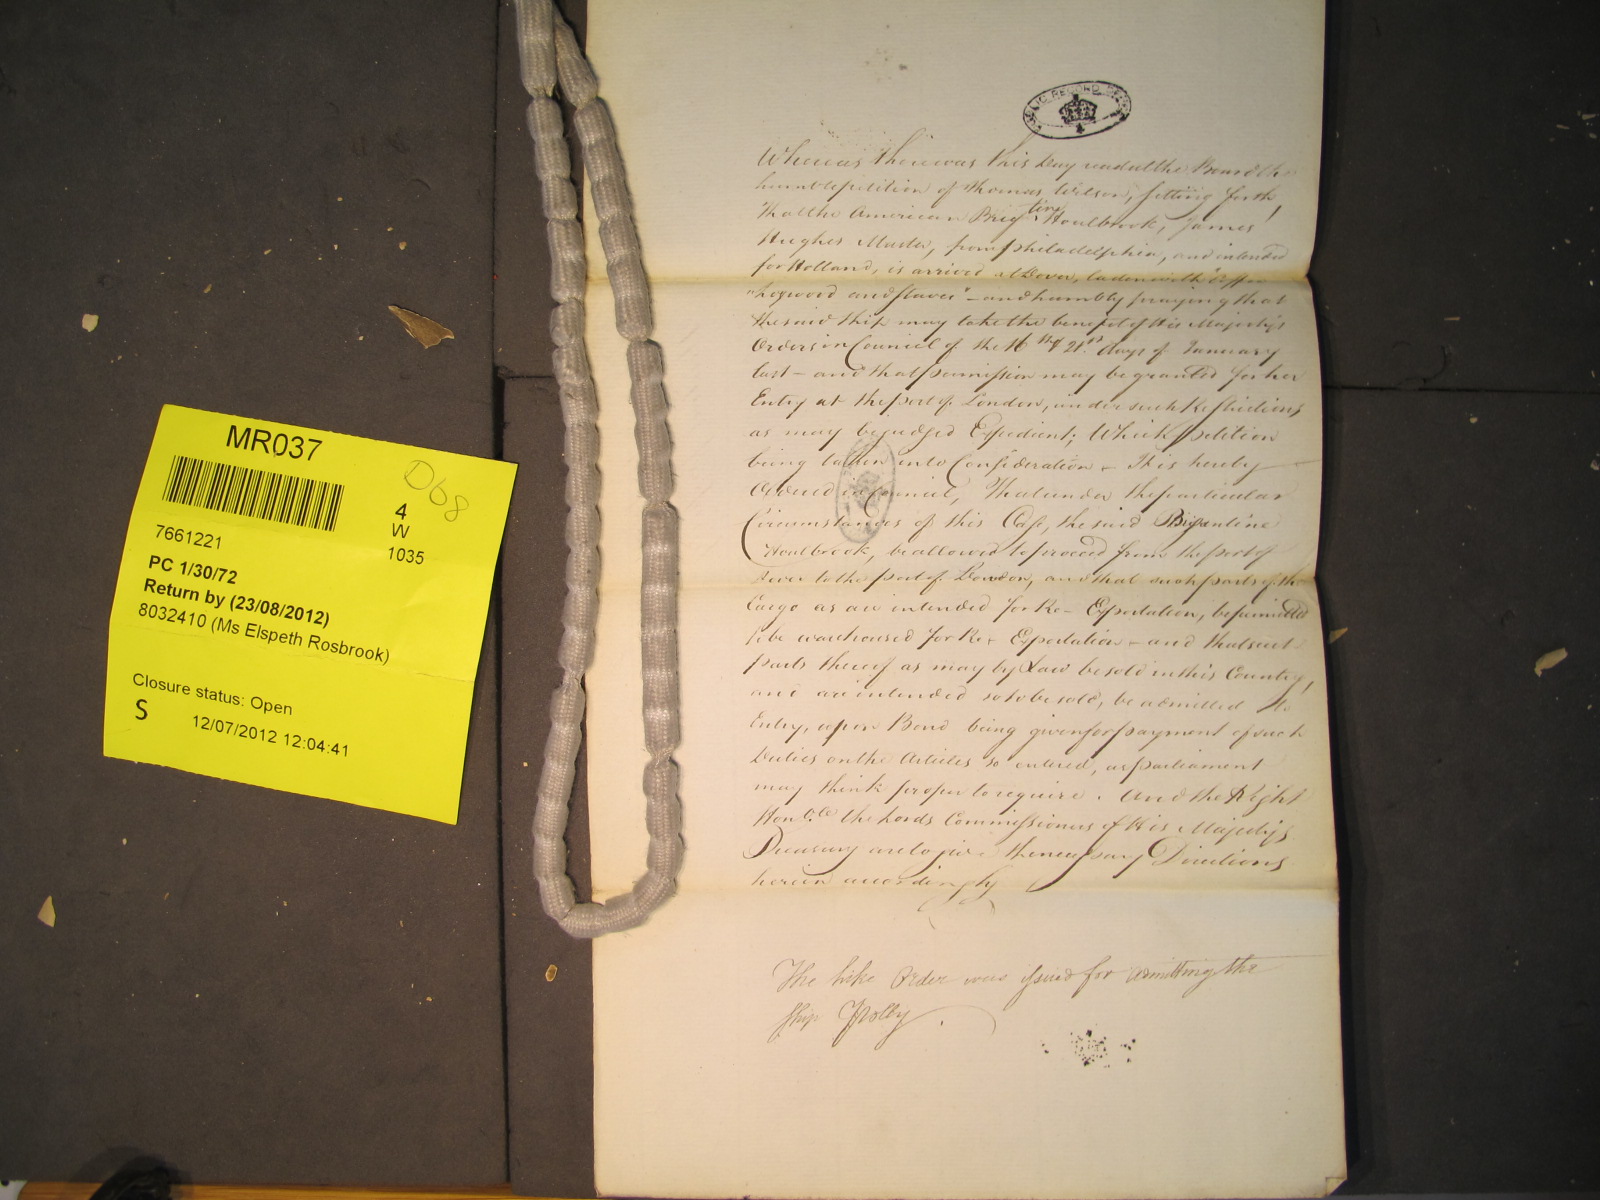 MR037
D68
4
W
1035
7661221
PC 1/30/72
Return by (23/08/2012)
8032410 (Ms Elspeth Rosbrook)
Closure status: Open
S
12/07/2012 12:04:41
PUBLIC RECORD OFFICE
Whereas there was this Day read at the Board the
humble petition of Thomas Wilson, setting forth,
That the American Brigtine Houlbrook, James
Hughes Master, from philadelphia, and intended
for Holland, is arrived at Dover, laden with "Coffee
"logwood and staves" - and humbly praying that
the said ship may take the benefit of His Majesty's
Orders in Council of the 16th & 21st days of January
last - and that permission may be granted for her
Entry at the port of London, under such Restrictions
as may be judged Expedient; Which petition
being taken into Consideration - It is hereby
Ordered in Council, That under the particular
Circumstances of this Case, the said Brigantine
Houlbrook, be allowed to proceed from the port of
Dover to the port of London, and that such parts of the
Cargo as are intended for Re-Exportation, be permitted
to be warehoused for Re-Exportation - and that such
parts thereof as may by Law be sold in this Country,
and are intended so to be sold, be admitted to
Entry, upon Bond being given for payment of such
Duties on the Articles so entered, as parliament
may think proper to require. And the Right
Honoble the Lords Commissioners of His Majesty's
Treasury are to give the necessary Directions
herein accordingly
The like Order was issued for admitting the
Ship Polly.